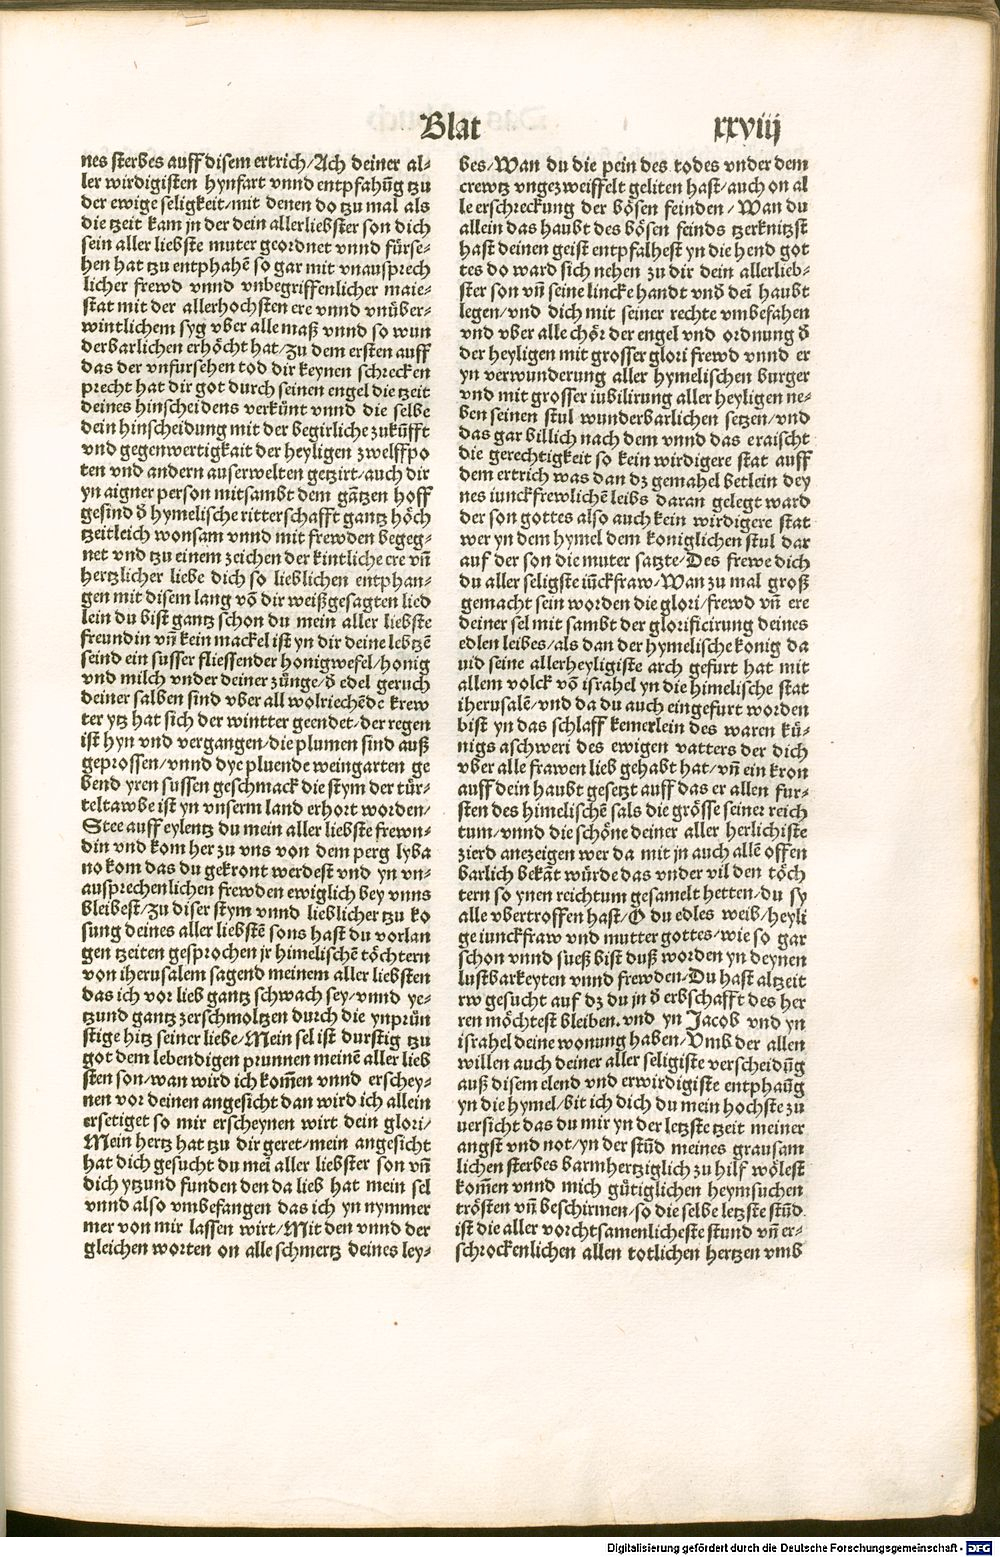 Blat xxviij
nes sterbes auff disem ertrich/Ach deiner al-
ler wirdigisten hynfart vnnd entpfahūg tzu
der ewige seligkeit/mit denen do tzu mal als
die tzeit kam jn der dein allerliebster son dich
sein aller liebste muter geordnet vnnd fürse-
hen hat tzu entphahē so gar mit vnausprech
licher frewd vnnd vnbegriffenlicher maie-
stat mit der allerhochsten ere vnnd vnüber-
wintlichem syg vber alle maß vnnd so wun
derbarlichen erhöcht hat/zu dem ersten auff
das der vnfursehen tod dir keynen schrecken
precht hat dir got durch seinen engel die tzeit
deines hinscheidens verkünt vnnd die selbe
dein hinscheidung mit der begirliche zukūfft
vnd gegenwertigkait der heyligen zwelffpo
ten vnd andern auserwelten getzirt/auch dir
yn aigner person mitsambt dem gātzen hoff
gesind d̄ hymelische ritterschafft gantz höch
tzeitleich wonsam vnnd mit frewden begeg-
net vnd tzu einem zeichen der kintliche ere vn̄
hertzlicher liebe dich so lieblichen entphan-
gen mit disem lang vō dir weißgesagten lied
lein du bist gantz schon du mein aller liebste
freundin vn̄ kein mackel ist yn dir deine lebtzē
seind ein susser fliessender honigwefel/honig
vnd milch vnder deiner zünge/d̄ edel geruch
deiner salben sind vber all wolriechēde krew
ter ytz hat sich der wintter geendet/der regen
ist hyn vnd vergangen/die plumen sind auß
geprossen/vnnd dye pluende weingarten ge
bend yren sussen geschmack die stym der tür-
teltawbe ist yn vnserm land erhort worden/
Stee auff eylentz du mein aller liebste frewn-
din vnd kom her zu vns von dem perg lyba
no kom das du gekront werdest vnd yn vn-
ausprechenlichen frewden ewiglich bey vnns
bleibest/zu diser stym vnnd lieblicher tzu ko
sung deines aller liebstē sons hast du vorlan
gen tzeiten gesprochen jr himelischē töchtern
von iherusalem sagend meinem aller liebsten
das ich vor lieb gantz schwach sey/vnnd ye-
tzund gantz zerschmoltzen durch die ynprün
stige hitz seiner liebe/Mein sel ist durstig tzu
got dem lebendigen prunnen meinē aller lieb
sten son/wan wird ich kom̄en vnnd erschey-
nen vor deinen angesicht dan wird ich allein
ersetiget so mir erscheynen wirt dein glori/
Mein hertz hat tzu dir geret/mein angesicht
hat dich gesucht du mei̅ aller liebster son vn̄
dich ytzund funden den da lieb hat mein sel
vnnd also vmbefangen das ich yn nymmer
mer von mir lassen wirt/Mit den vnnd der
gleichen worten on alle schmertz deines ley-
bes/Wan du die pein des todes vnder dem
crewtz vngezweiffelt geliten hast/auch on al
le erschreckung der bösen feinden/Wan du
allein das haubt des bösen feinds tzerknitzst
hast deinen geist entpfalhest yn die hend got
tes do ward sich nehen zu dir dein allerlieb-
ster son vn̄ seine lincke handt vnd̄ dei̅ haubt
legen/vnd dich mit seiner rechte vmbefahen
vnd vber alle chör der engel vnd ordnung d̄
der heyligen mit grosser glori frewd vnnd er
yn verwunderung aller hymelischen burger
vnd mit grosser iubilirung aller heyligen ne-
ben seinen stul wunderbarlichen setzen/vnd
das gar billich nach dem vnnd das eraischt
die gerechtigkeit so kein wirdigere stat auff
dem ertrich was dan dz gemahel betlein dey
nes iunckfrewlichē leibs daran gelegt ward
der son gottes also auch kein wirdigere stat
wer yn dem hymel dem koniglichen stul dar
auf der son die muter satzte/Des frewe dich
du aller seligste iūckfraw/Wan zu mal groß
gemacht sein worden die glori/frewd vn̄ ere
deiner sel mit sambt der glorificirung deines
edlen leibes/als dan der hymelische konig da
uid seine allerheyligiste arch gefurt hat mit
allem volck vō israhel yn die himelische stat
iherusalē/vnd da du auch eingefurt worden
bist yn das schlaff kemerlein des waren kü-
nigs aschweri des ewigen vatters der dich
vber alle frawen lieb gehabt hat/vn̄ ein kron
auff dein haubt gesetzt auff das er allen fur-
sten des himelischē sals die grösse seiner reich
tum/vnnd die schöne deiner aller herlichiste
zierd anezeigen wer da mit jn auch allē offen
barlich bekāt würde das vnder vil den töch
tern so ynen reichtum gesamelt hetten/du sy
alle vbertroffen hast/O du edles weib/heyli
ge iunckfraw vnd mutter gottes/wie so gar
schon vnnd sueß bist duß worden yn deynen
lustbarkeyten vnnd frewden/Du hast altzeit
rw gesucht auf dz du jn d̄ erbschafft des her
ren möchtest bleiben. vnd yn Jacob vnd yn
israhel deine wonung haben/Vmb der allen
willen auch deiner aller seligiste verscheidūg
auß disem elend vnd erwirdigiste entphaūg
yn die hymel/bit ich dich du mein hochste zu
uersicht das du mir yn der letzste tzeit meiner
angst vnd not/yn der stūd meines grausam
lichen sterbes barmhertziglich zu hilf wölest
kom̄en vnnd mich gütiglichen heymsuchen
trösten vn̄ beschirmen/so die selbe letzste stūd
ist die aller vorchtsamenlicheste stund vn̄ er-
schrockenlichen allen totlichen hertzen vmb
Digitalisierung gefördert durch die Deutsche Forschungsgemeinschaft - DFG